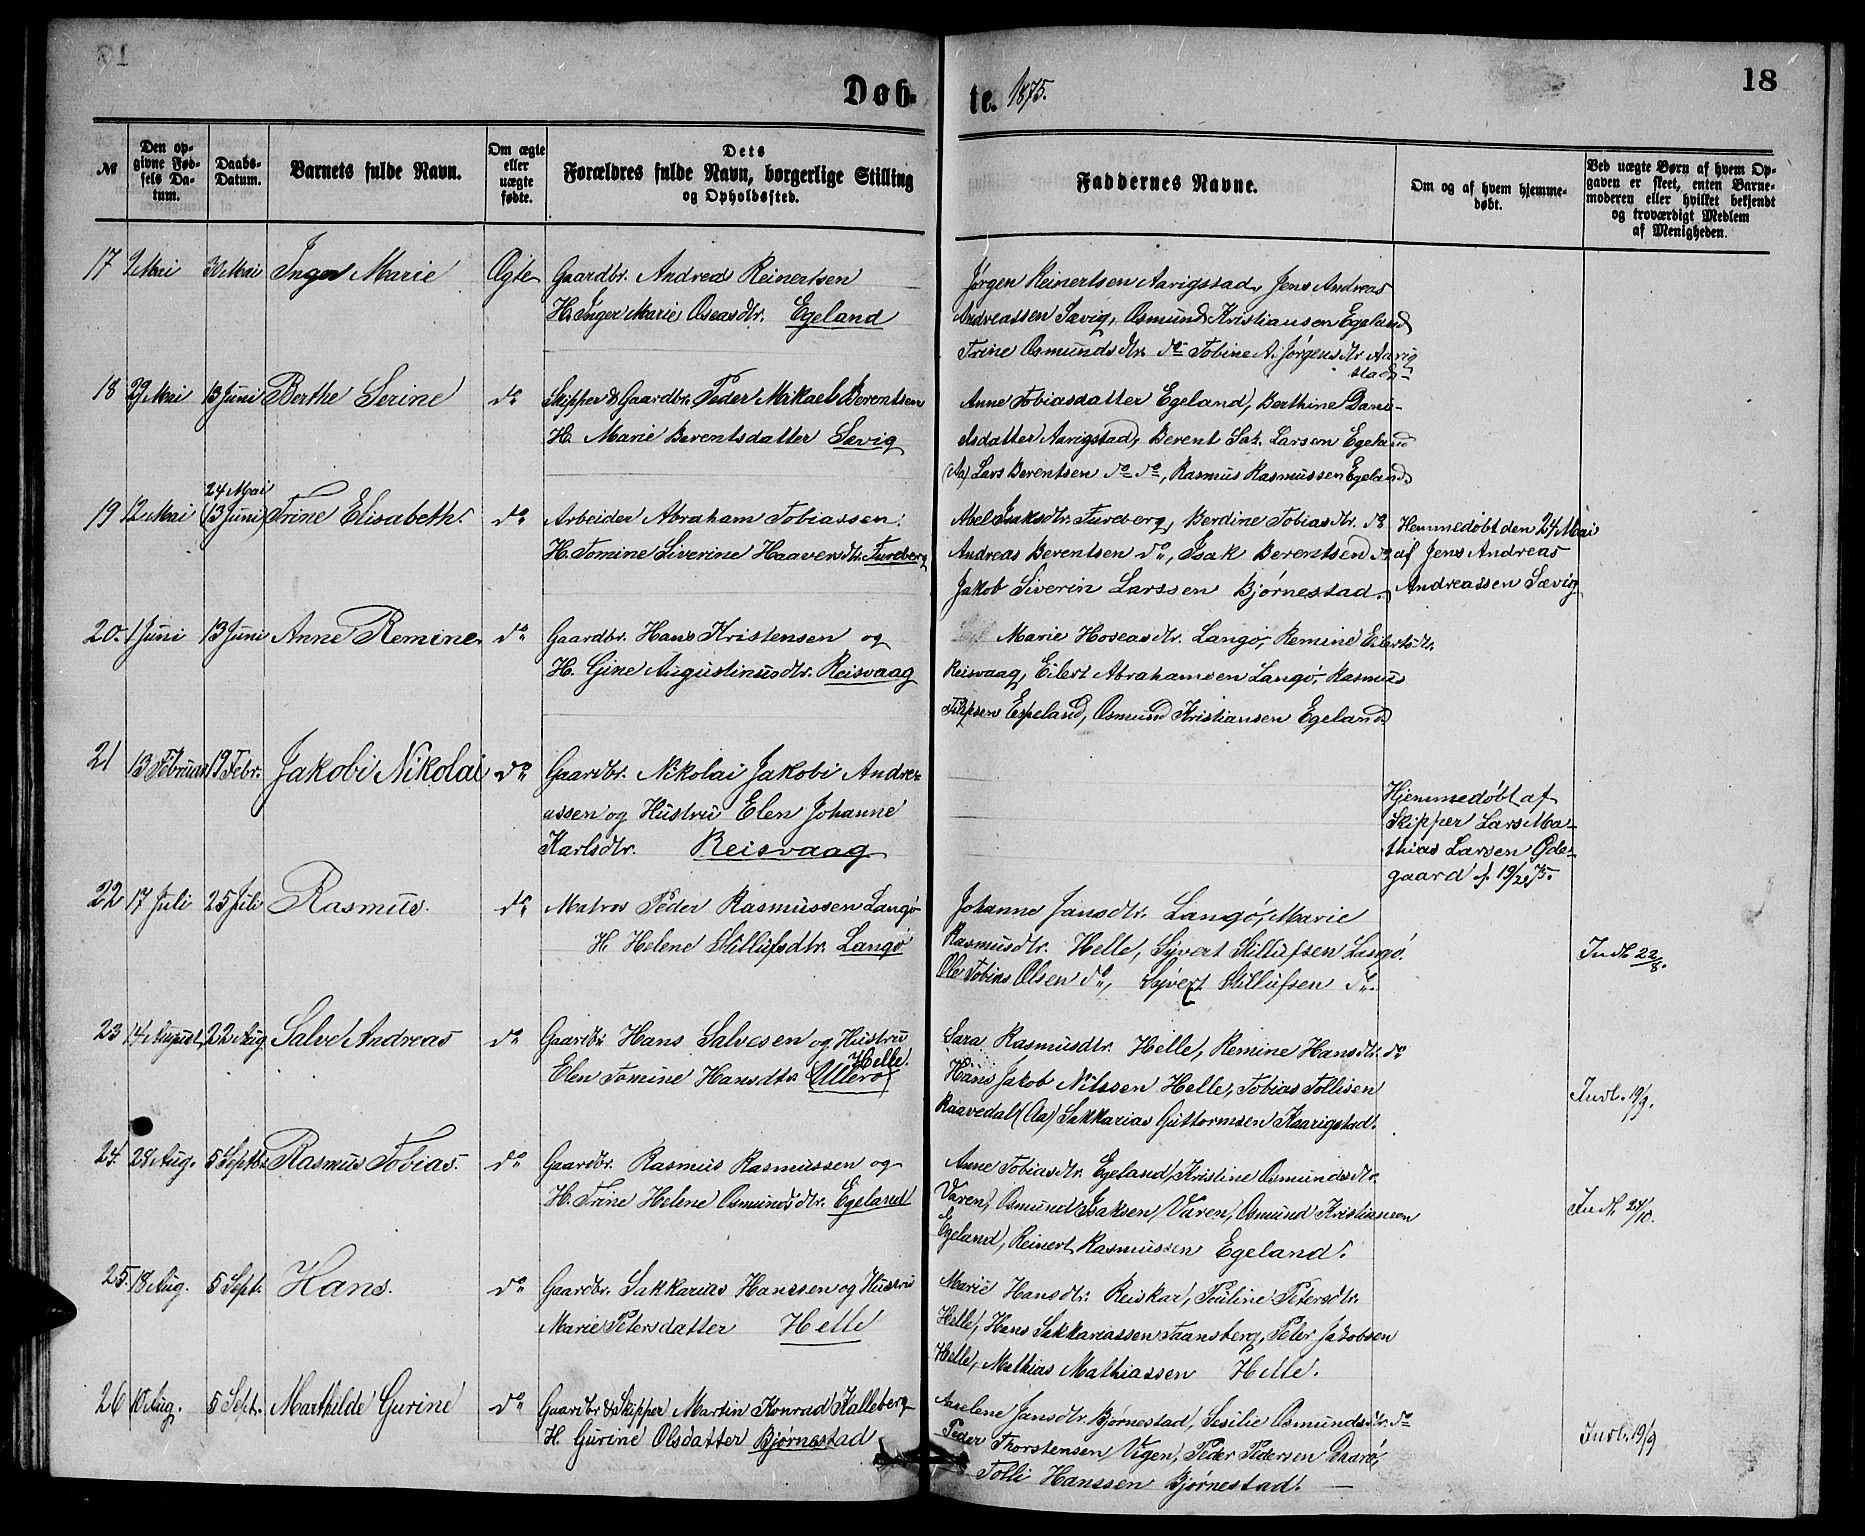 Døb-
te. 1875.
18
№
Den op-
givne Fød-
sels Da-
tum.
Daabs-
Datum.
Barnets fulde Navn.
Om ægte
eller
uægte
fødte.
Dets
Forældres fulde Navn, borgerlige Stilling
og Opholdssted.
Faddernes Navne.
Om og af hvem hjemme-
døbt.
Ved uægte Børn af hvem Op-
gaven er skeet, enten Barne-
moderen eller hvilket bekjendt
og troværdigt Medlem
af Menigheden.
17 9 Mai 30 Mai Inger Marie Ægte Gaardbr. Andreas Reinertsen
H. Inger Marie Oseasdtr. Egeland
Jørgen Reinertsen Aarigstad, Jens Andreas
Andreassen Sævig, Osmund Kristiansen Egeland
Trine Osmundsdtr. do Tobine A. Jørgensdtr Aarig
stad
18 29 Mai 13 Juni Berthe Serine do Skipper & Gaardbr. Peder Mikael Berentsen
H. Marie Berentsdatter Sævig
Anne Tobiasdatter Egeland, Berthine Dani-
elsdatter Aarigstad, Berent Sak. Larsen Egeland
(Aa) Lars Berentsen do do, Rasmus Rasmussen Egeland
24 Mai
19 12 Mai (13 Juni) Trine Elisabeth. do Arbeider Abraham Tobiassen.
H. Tomine Siverine Haavensdtr. Fureberg
Abel Isaksdtr. Fureberg, Berdine Tobiasdtr. do
Andreas Berentsen do, Isak Berentsen do
Jakob Siverin Larssen Bjørnestad.
Hemmedøbt den 24 Mai
af Jens Andreas
Andreassen Sævig
20. 1 Juni 13 Juni Anne Remine. do Gaardbr. Hans Kristensen og
H. Gine Augustinusdtr. Reisvaag
Marie Hoseasdtr. Langø, Remine Eilertsdtr.
Reisvaag, Eilert Abrahamsen Langø, Rasmus
Filipsen Espeland, Osmund Kristiansen Egeland
21 13 Februar 19 Febr. Jakobi Nikolai do Gaardbr. Nikolai Jakobi Andre-
assen og Hustru Elen Johanne
Karlsdtr. Reisvaag
Hjemmedøbt af
Skipper Lars Ma-
thias Larsen Øde-
gaard d. 19/2 75.
22 17 Juli 25 Juli Rasmus. do Matros Peder Rasmussen Langø
H. Helene Stillufsdtr. Langø
Johanne Jansdtr. Langø, Marie
Rasmusdtr. Helle, Syvert Stillufsen Langø.
Ole Tobias Olsen do, Syvert Stillufsen do.
Indl. 22/8.
23 14 August 22 Aug. Salve Andreas do Gaardbr. Hans Salvesen og Hustru
Helle.
Elen Tomine Hansdtr. Ullerø
Sara Rasmusdtr. Helle, Remine Hansdtr. do
Hans Jakob Nilssen Helle, Tobias Tollisen
Raavedal (Aa) Sakkarias Guttormsen Kaarigstad.
Indl. 19/9.
24. 28 Aug. 5 Septbr. Rasmus Tobias. do Gaardbr. Rasmus Rasmussen og
H. Trine Helene Osmundsdtr. Egeland
Anne Tobiasdtr. Egeland, Kristine Osmundsdtr.
Varen, Osmund Isaksen Varen, Osmund Kristiansen
Egeland, Reinert Rasmussen Egeland.
Indl. 24/10.
25. 18 Aug. 5 Sept. Hans. do Gaardbr. Sakkarias Hanssen og Hustru
Marie Petersdatter Helle
Marie Hansdtr. Reiskar, Pouline Petersdtr.
Helle, Hans Sakkariassen Taansberg, Peter Jakobsen
Helle, Mathias Mathiassen Helle.
26 10 Aug. 5 Sept. Marthilde Gurine do Gaardbr. & Skipper Martin Konrad Kalleberg
H. Gurine Olsdatter Bjørnestad
Aaselene Jansdtr. Bjørnestad, Sesilie Osmundsdtr. do
Peder Thorstensen Vigen, Peder Pedersen Daarø,
Tolli Hanssen Bjørnestad.
Indl. 19/9